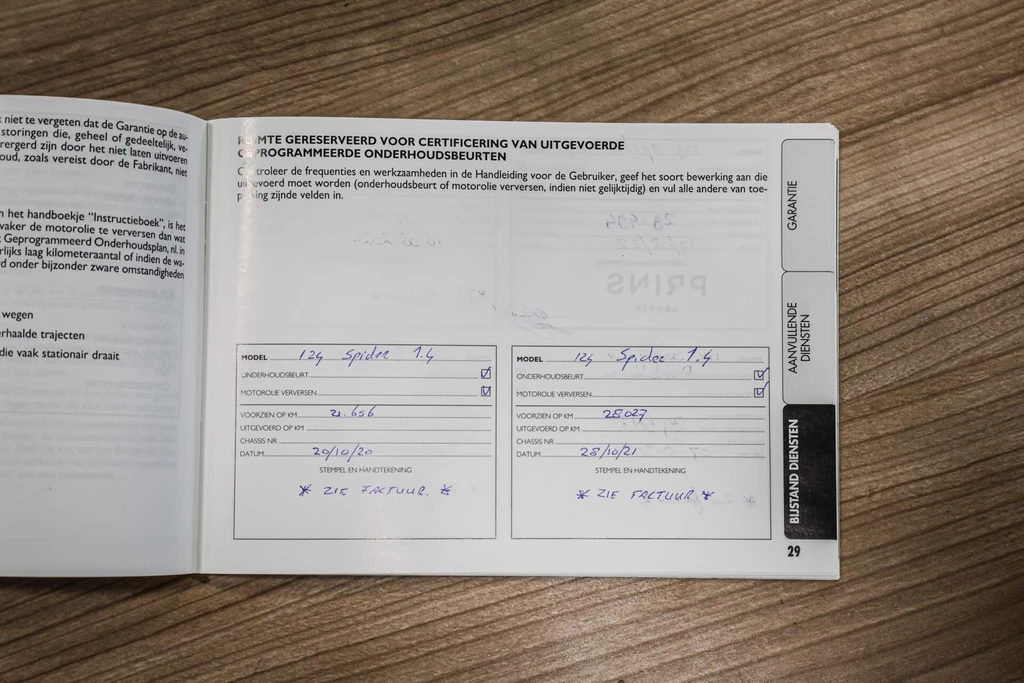 niet te vergeten dat de Garantie op de au-
storingen die, geheel of gedeeltelijk, ve-
rergerd zijn door het niet laten uitvoeren
oud, zoals vereist door de Fabrikant, niet
het handboekje "Instructieboek", is het
vaker de motorolie te verversen dan wat
Geprogrammeerd Onderhoudsplan, nl. in
rlijks laag kilometeraantal of indien de wa-
d onder bijzonder zware omstandigheden
wegen
erhaalde trajecten
die vaak stationair draait
MTE GERESERVEERD VOOR CERTIFICERING VAN UITGEVOERDE
PROGRAMMEERDE ONDERHOUDSBEURTEN
troleer de frequenties en werkzaamheden in de Handleiding voor de Gebruiker, geef het soort bewerking aan die
uitgevoerd moet worden (onderhoudsbeurt of motorolie verversen, indien niet gelijktijdig) en vul alle andere van toe-
passing zijnde velden in.
MODEL 124 Spider 1.4
ONDERHOUDSBEURT
MOTOROLIE VERVERSEN
VOORZIEN OP KM 21.656
UITGEVOERD OP KM
CHASSIS NR
DATUM 20/10/20
STEMPEL EN HANDTEKENING
* ZIE FACTUUR. *
MODEL 124 Spider 1.4
ONDERHOUDSBEURT
MOTOROLIE VERVERSEN
VOORZIEN OP KM 28.027
UITGEVOERD OP KM
CHASSIS NR
DATUM 28/10/21
STEMPEL EN HANDTEKENING
* ZIE FACTUUR *
GARANTIE
AANVULLENDE
DIENSTEN
BIJSTAND DIENSTEN
29